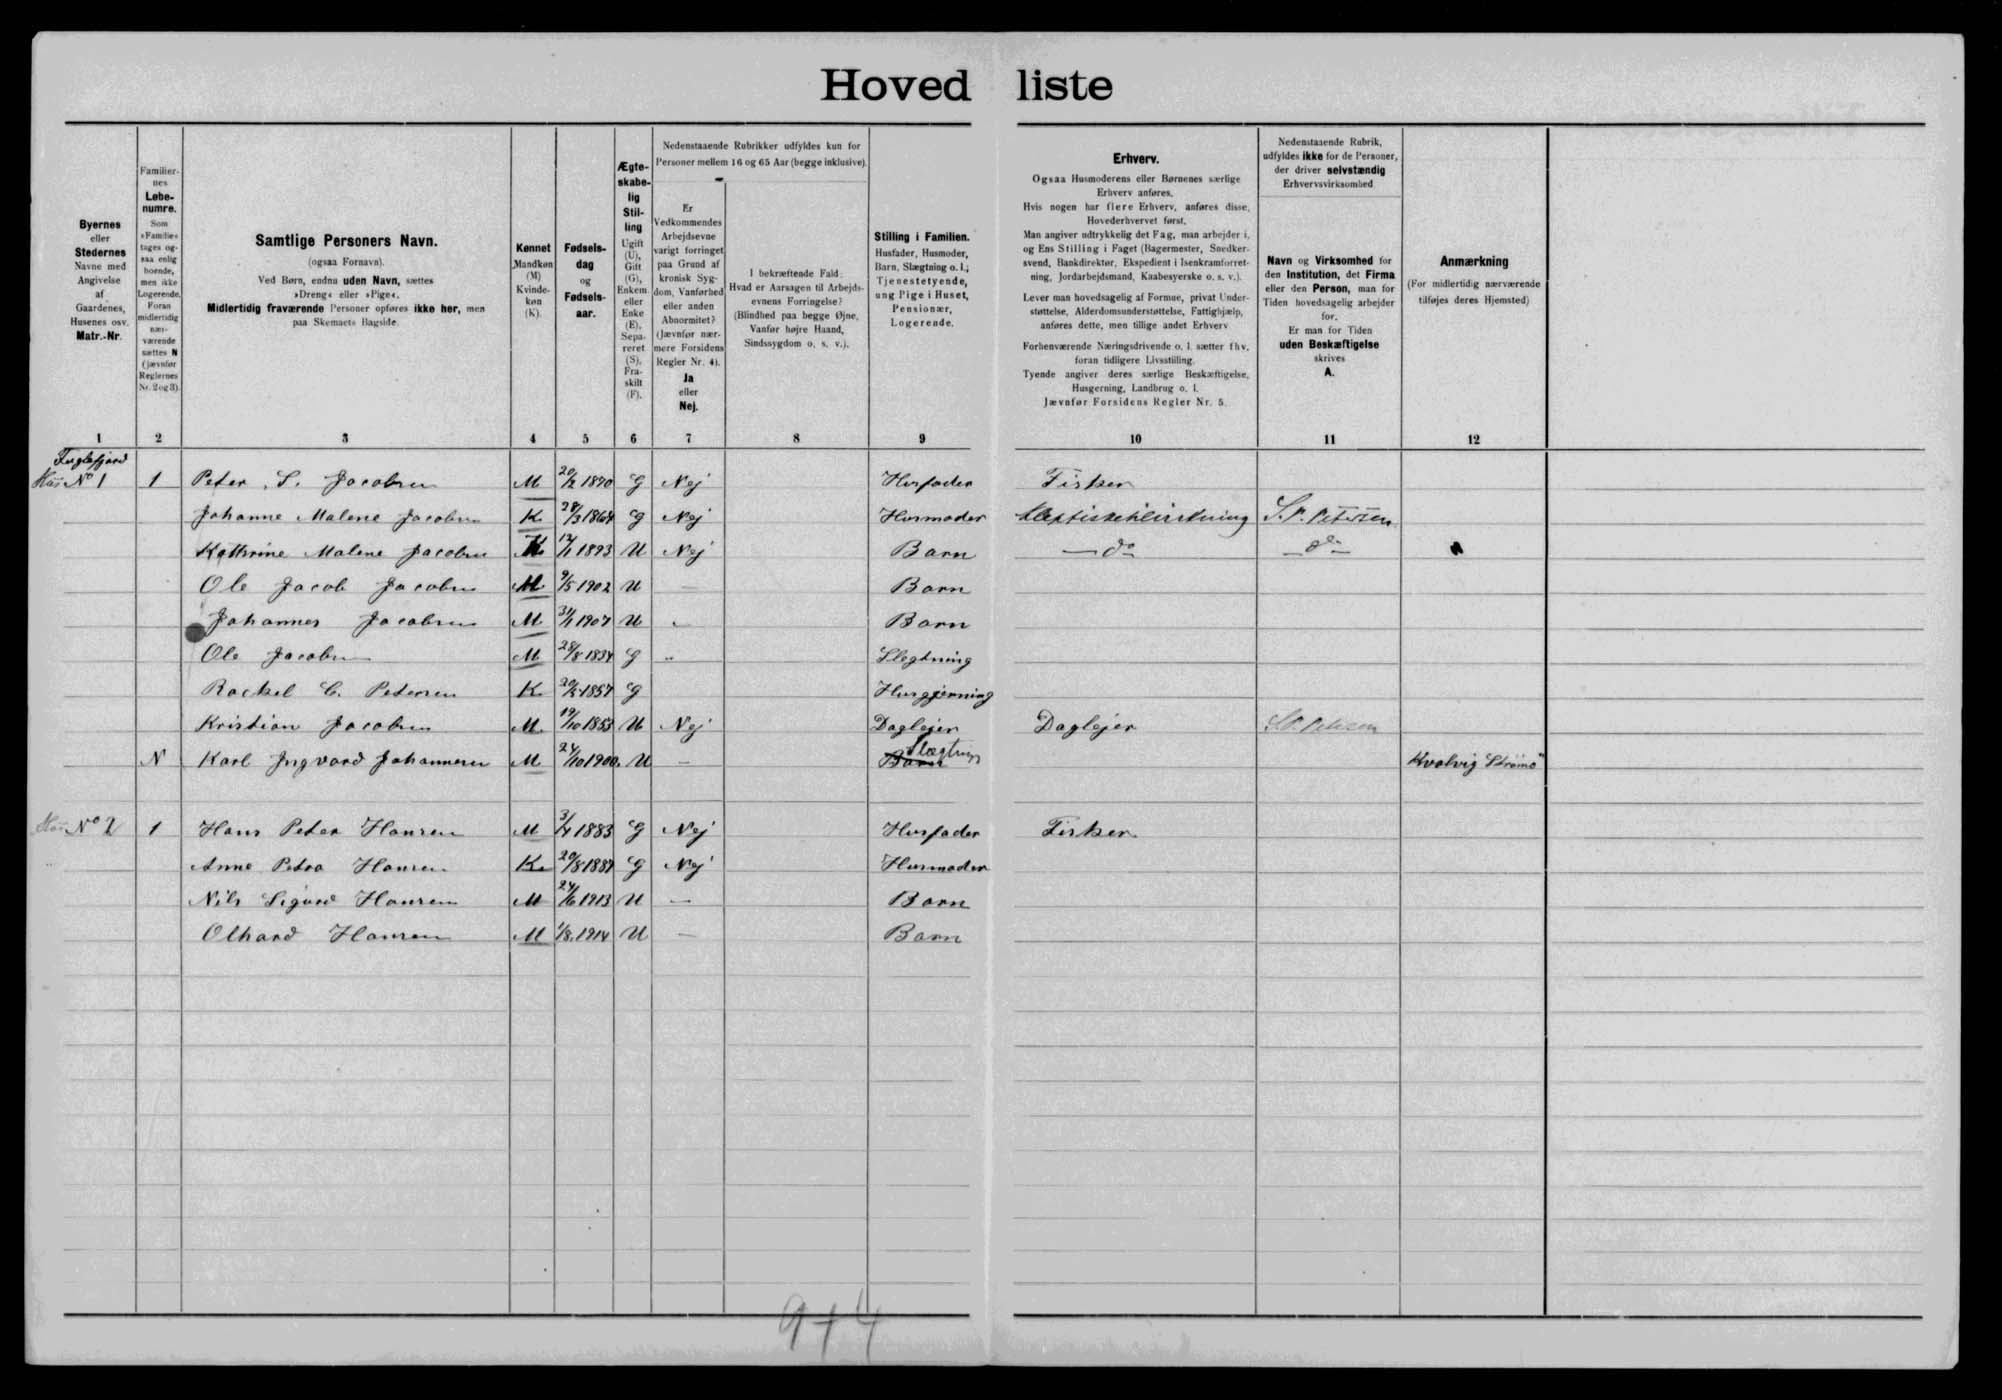 Hovedliste
Byernes
eller
Stedernes
Navne med
Angivelse
af
Gaardenes,
Husenes osv.
Matr.-Nr.
Familier-
nes
Løbe-
numre.
Som
»Familie«
tages og-
saa enlig
boende,
men ikke
Logerende.
Foran
midlertidig
nær-
værende
sættes N
(jævnfør
Reglernes
Nr. 2 og 3).
Samtlige Personers Navn.
(ogsaa Fornavn).
Ved Børn, endnu uden Navn, sættes
»Dreng« eller »Pige«.
Midlertidig fraværende Personer opføres ikke her, men
paa Skemaets Bagside.
Kønnet
Mandkøn
(M)
Kvinde-
køn
(K).
Fødsels-
dag
og
Fødsels-
aar.
Ægte-
skabe-
lig
Stil-
ling
Ugift
(U),
Gift
(G),
Enkem.
eller
Enke
(E),
Sepa-
reret
(S),
Fra-
skilt
(F).
Nedenstaaende Rubrikker udfyldes kun for
Personer mellem 16 og 65 Aar (begge inklusive).
Er
Vedkommendes
Arbejdsevne
varigt forringet
paa Grund af
kronisk Syg-
dom, Vanførhed
eller anden
Abnormitet?
(Jævnfør nær-
mere Forsidens
Regler Nr. 4).
Ja
eller
Nej.
I bekræftende Fald:
Hvad er Aarsagen til Arbejds-
evnens Forringelse?
(Blindhed paa begge Øjne,
Vanfør højre Haand,
Sindssygdom o. s. v.).
Stilling i Familien.
Husfader, Husmoder,
Barn, Slægtning o. l.;
Tjenestetyende,
ung Pige i Huset,
Pensionær,
Logerende.
Erhverv.
Ogsaa Husmoderens eller Børnenes særlige
Erhverv anføres.
Hvis nogen har flere Erhverv, anføres disse,
Hovederhvervet først.
Man angiver udtrykkelig det Fag, man arbejder i,
og Ens Stilling i Faget (Bagermester, Snedker-
svend, Bankdirektør, Ekspedient i Isenkramforret-
ning, Jordarbejdsmand, Kaabesyerske o. s. v.).
Lever man hovedsagelig af Formue, privat Under-
støttelse, Alderdomsunderstøttelse, Fattighjælp,
anføres dette, men tillige andet Erhverv
Forhenværende Næringsdrivende o. l. sætter fhv.
foran tidligere Livsstilling.
Tyende angiver deres særlige Beskæftigelse,
Husgerning, Landbrug o. l.
Jævnfør Forsidens Regler Nr. 5.
Nedenstaaende Rubrik,
udfyldes ikke for de Personer,
der driver selvstændig
Erhvervsvirksomhed
Navn og Virksomhed for
den Institution, det Firma
eller den Person, man for
Tiden hovedsagelig arbejder
for.
Er man for Tiden
uden Beskæftigelse
skrives
A.
Anmærkning
(For midlertidig nærværende
tilføjes deres Hjemsted)
1 2 3 4 5 6 7 8 9 10 11 12
Fuglefjord
Hus No 1 1 Peter S. Jacobsen M G Nej Husfader Fisker
Johanne Malene Jacobsen K 28/3 1864 G Nej Husmoder S. P. Petersen
Kathrine Malene Jacobsen K 12/1 1893 U Nej Barn — do — — do —
Ole Jacob Jacobsen M 9/5 1902 U — Barn
Johannes Jacobsen M 31/1 1907 U — Barn
Ole Jacobsen M 28/8 1834 G Slegtning
Rackel C. Petersen K G Husgjerning
Kristian Jacobsen M 19/10 1853 U Nej Daglejer Daglejer S.P. Petersen
N Karl Ingvard Johannesen M 24/10 1900. U — Barn Slægtning Kvalvig Strømø
Hus No 2 1 Hans Peter Hansen M 1883 G Nej Husfader Fisker
Anne Petra Hansen K G Nej Husmoder
Nils Sigurd Hansen M 24/6 1913 U — Barn
Olhard Hansen M 1/8. 1914 U — Barn
9+4